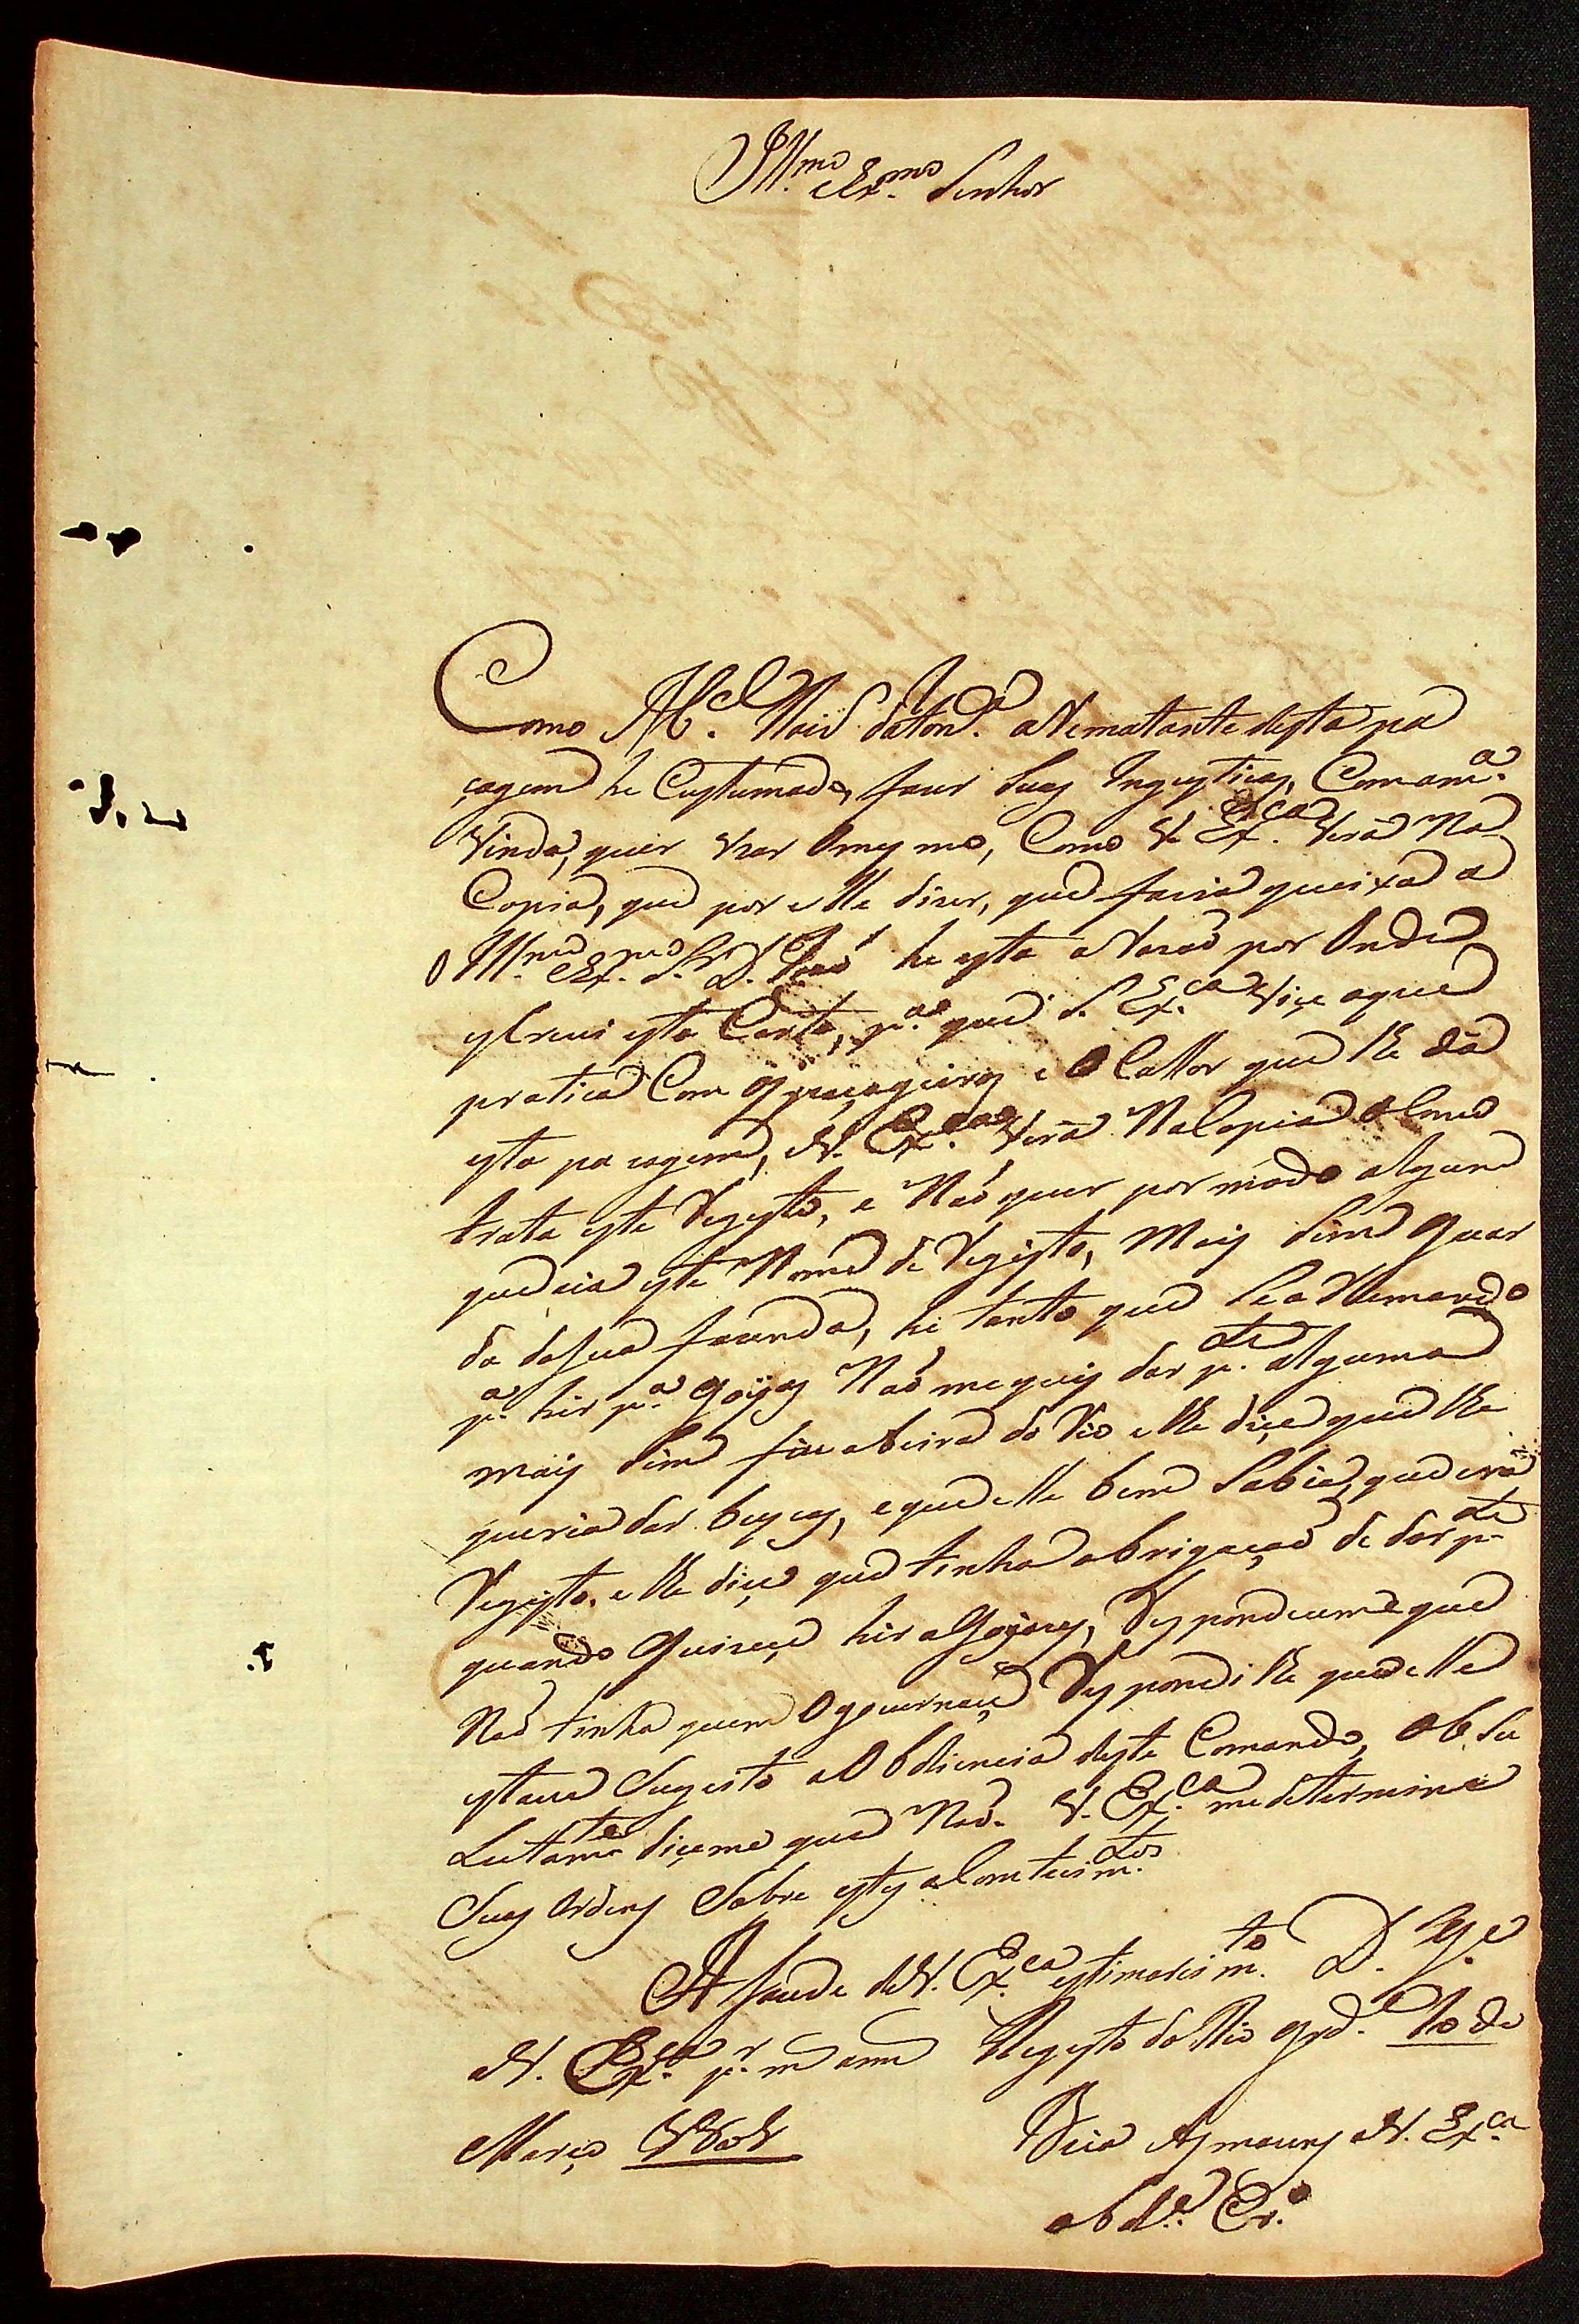 Ill.mo eEx.mo Senhor
Como M.el Nois daton.a aRematante desta pa
çagem he Custumado, fazer Suas Ingestias, Comam.a
Vinda, quer Uzar Omesmo, Como V. Ex.ca Verá Na
Copia, que por elle dizer, que faria queixa a
O Ill.mo eEx.mo S.r D. João he esta aRazaõ por Onde
escreui esta Carta, p.a que S. Ex.ca Viçe aque
pratica Com Os paçageiros e O Callor que lhe dá
esta paçagem, eV. Ex.ca Verá NaCopia OComo
trata este Regesto, e Naõ quer por modo algum
queseia este Nome de Registo, Mais Sim Guar
da daSua fazenda, he tanto que Seo Remando
p.a hir p.a Goÿas Naõ mequis dar p.te alguma
mais Sim foi abeira do Rio elhe diçe que lhe
queria dar bescas, eque elle bem Sabia, que era
Registo. elhe diçe que tinha obrigaçaõ de dar p.te
quando Quizeçe hir aGoÿazes, Respondeume que
Naõ tinha quem Ogouernaçe Respondilhe que elle
estaua Sugeito aObdiencia deste Comando, Absu
Lutam.te diçeme que Naõ. V. Ex.ca medetermine
Suas Ordens Sobre estes aContecim.tos
A Saude deV. Ex.ca estimarei m.to D.s g.e
aV. Ex.ca p.r m ann Regesto doRio grd.e 10 de
Março 1808
Beia Asmaung aV. Ex.ca
obd.e Cr.o